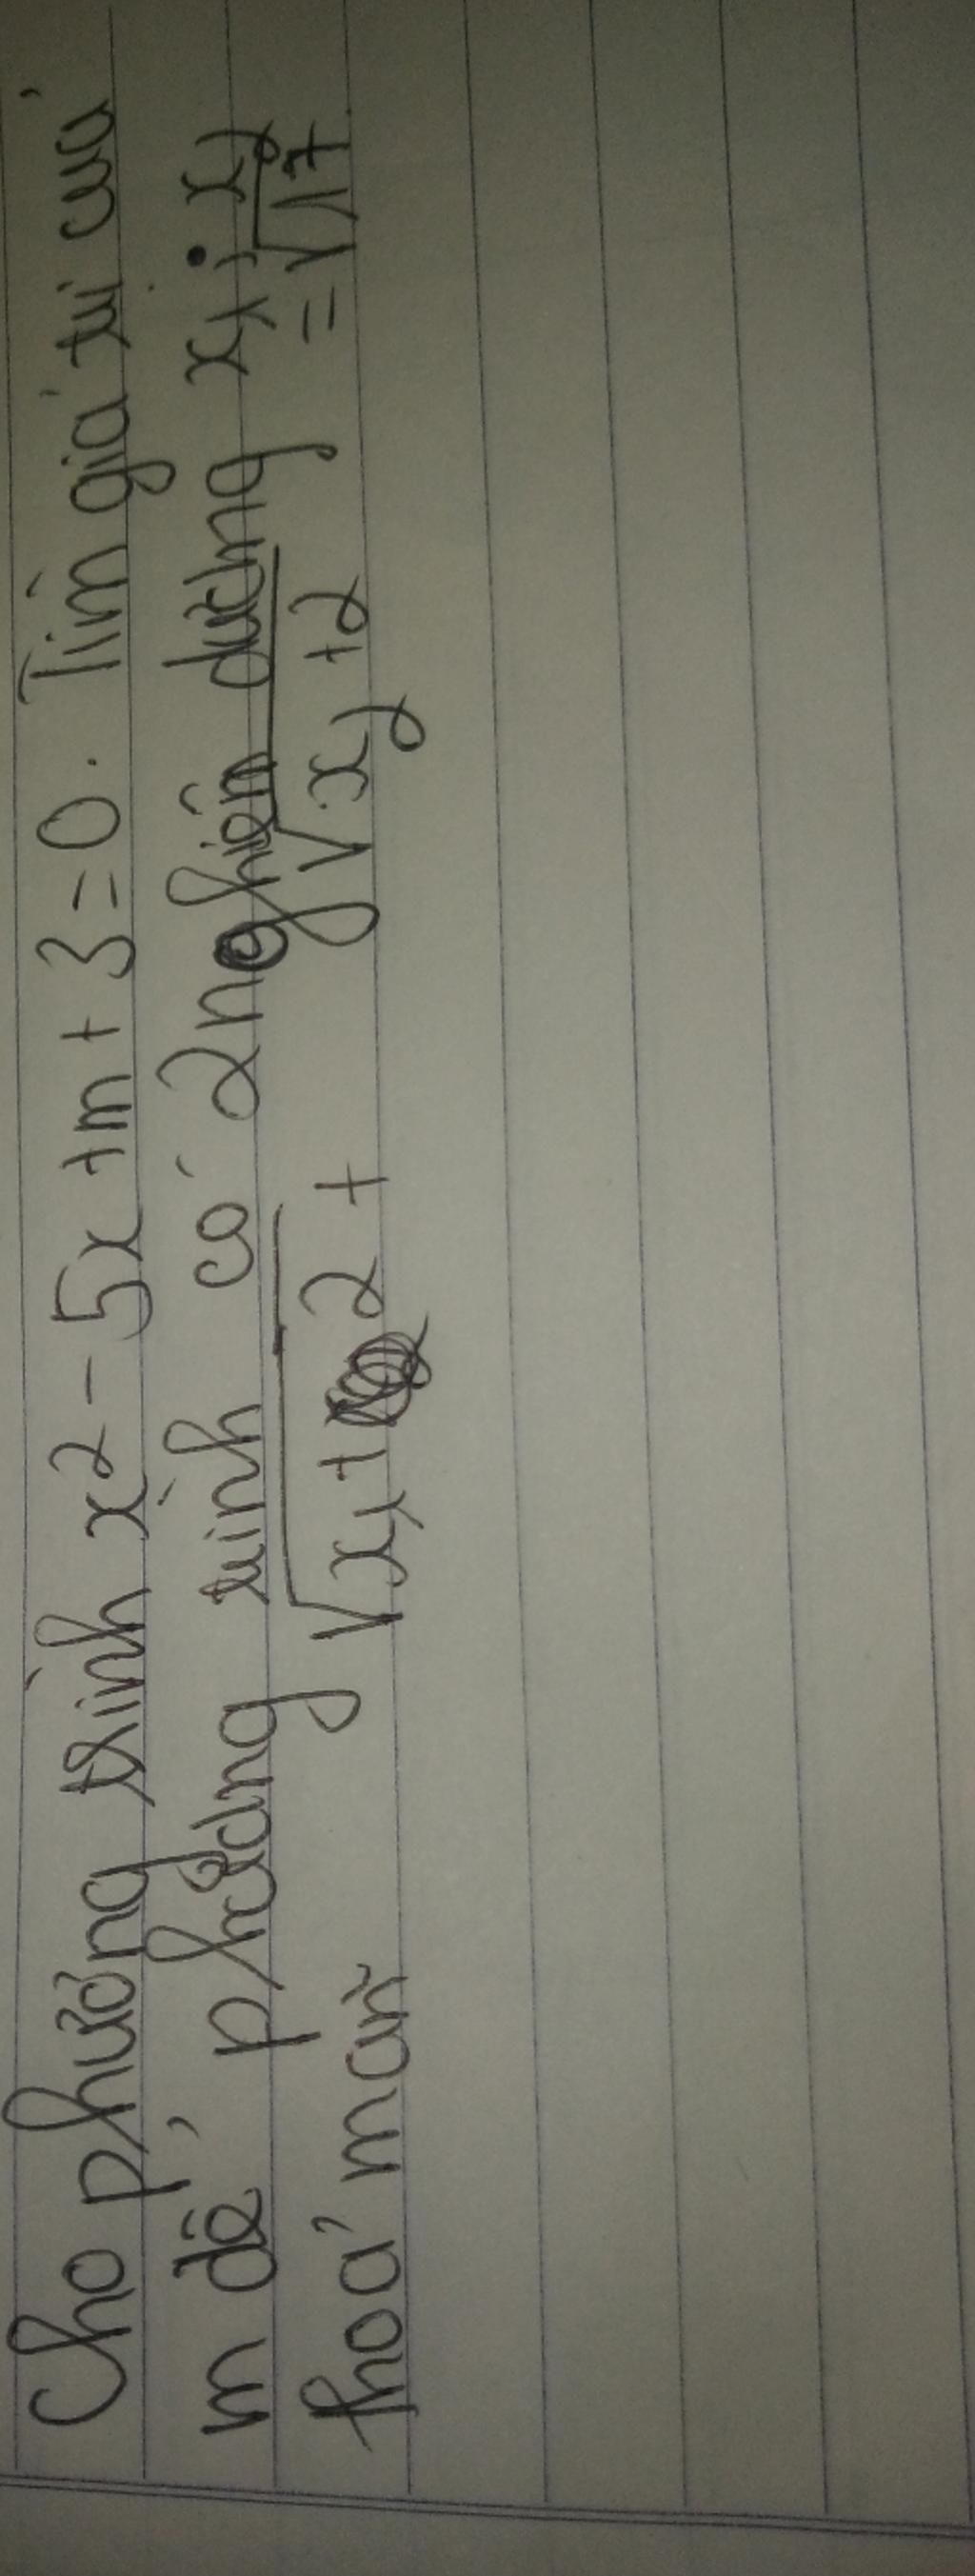 Cho phương trình x² - 5x + m + 3 = 0. Tìm giá trị của
m để phương trình có 2 nghiệm dương x₁, x₂
thoả mãn √x₁+2 + √x₂+2 = √17